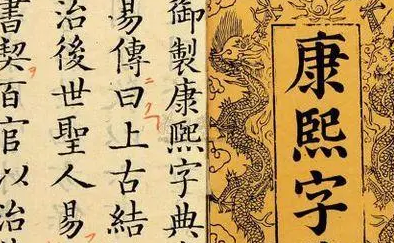 康熙字
御製康熙字典
易傳曰上古結
治後世聖人易
書契百官以治